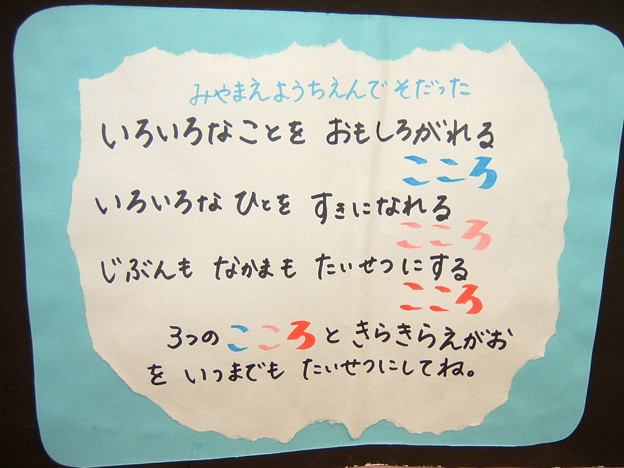 みやまえようちえんでそだった
いろいろなことを おもしろがれる
こころ
いろいろな ひとを すきになれる
こころ
じぶんも なかまも たいせつにする
こころ
3つの こころ と きらきらえがお
を いつまでも たいせつにしてね。